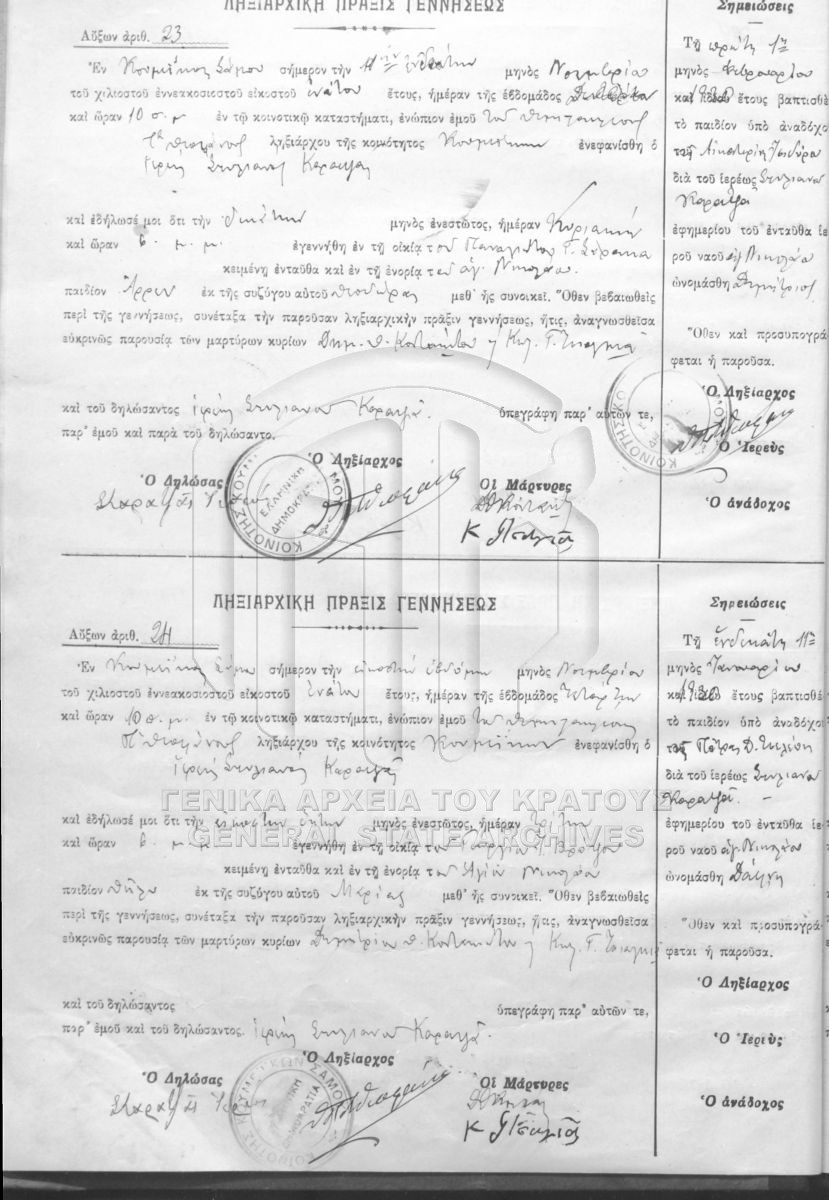 ΛΗΞΙΑΡΧΙΚΗ ΠΡΑΞΙΣ ΓΕΝΝΗΣΕΩΣ
Αὔξων ἀριθ. 23
Ἐν Κουμεΐκᾳ Σάμου σήμερον τὴν 11ην ἑνδεκάτην μηνὸς Νοεμβρίου
τοῦ χιλιοστοῦ ἐννεακοσιοστοῦ εἰκοστοῦ ἐνάτου ἔτους, ἡμέραν τῆς ἑβδομάδος Δευτέραν
καὶ ὥραν 10 π.μ. ἐν τῷ κοινοτικῷ καταστήματι, ἐνώπιον ἐμοῦ τοῦ
ληξιάρχου τῆς κοινότητος Κουμεΐκων ἐνεφανίσθη ὁ
Ἱερεὺς Στυλιανὸς Καρατζᾶς
καὶ ἐδήλωσέ μοι ὅτι τὴν δεκάτην μηνὸς ἐνεστῶτος, ἡμέραν Κυριακὴν
καὶ ὥραν 6 μ.μ. ἐγεννήθη ἐν τῇ οἰκίᾳ τοῦ Παναγιώτου Γ.
κειμένῃ ἐνταῦθα καὶ ἐν τῇ ἐνορίᾳ τοῦ ἁγ. Νικολάου.
παιδίον ἄρρεν ἐκ τῆς συζύγου αὐτοῦ Θεοδώρας μεθ' ἧς συνοικεῖ. Ὅθεν βεβαιωθεὶς
περὶ τῆς γεννήσεως, συνέταξα τὴν παροῦσαν ληξιαρχικὴν πρᾶξιν γεννήσεως, ἥτις, ἀναγνωσθεῖσα
εὐκρινῶς παρουσίᾳ τῶν μαρτύρων κυρίων Δημ. Θ.
καὶ τοῦ δηλώσαντος Ἱερέως Στυλιανοῦ Καρατζᾶ. ὑπεγράφη παρ' αὐτῶν τε,
παρ' ἐμοῦ καὶ παρὰ τοῦ δηλώσαντο.
Ὁ Δηλώσας
Ὁ Ληξίαρχος
Οἱ Μάρτυρες
ΕΛΛΗΝΙΚΗ ΔΗΜΟΚΡΑΤΙΑ
Σημειώσεις
Τῇ πρώτῃ 1ῃ
μηνὸς Φεβρουαρίου
καὶ 1930 ἔτους βαπτισθὲ
τὸ παιδίον ὑπὸ ἀναδόχο
διὰ τοῦ ἱερέως Στυλιανοῦ
Καρατζᾶ
ἐφημερίου τοῦ ἐνταῦθα ἱε
ροῦ ναοῦ ἁγ. Νικολάου
ὠνομάσθη Δημήτριος
Ὅθεν καὶ προσυπογρά
φεται ἡ παροῦσα.
Ὁ Ληξίαρχος
Ὁ Ἱερεὺς
Ὁ ἀνάδοχος
ΛΗΞΙΑΡΧΙΚΗ ΠΡΑΞΙΣ ΓΕΝΝΗΣΕΩΣ
Αὔξων ἀριθ. 24
Ἐν Κουμεΐκᾳ Σάμου σήμερον τὴν εἰκοστὴν ἑβδόμην μηνὸς Νοεμβρίου
τοῦ χιλιοστοῦ ἐννεακοσιοστοῦ εἰκοστοῦ ἐνάτου ἔτους, ἡμέραν τῆς ἑβδομάδος Τετάρτην
καὶ ὥραν 10 π.μ. ἐν τῷ κοινοτικῷ καταστήματι, ἐνώπιον ἐμοῦ τοῦ
ληξιάρχου τῆς κοινότητος Κουμεΐκων ἐνεφανίσθη ὁ
Ἱερεὺς Στυλιανὸς Καρατζᾶς
ΓΕΝΙΚΑ ΑΡΧΕΙΑ ΤΟΥ ΚΡΑΤΟΥΣ
GENERAL STATE ARCHIVES
καὶ ἐδήλωσέ μοι ὅτι τὴν εἰκοστὴν ἕκτην μηνὸς ἐνεστῶτος, ἡμέραν Τρίτην
καὶ ὥραν 6 μ.μ. ἐγεννήθη ἐν τῇ οἰκίᾳ τοῦ Γεωργίου
κειμένῃ ἐνταῦθα καὶ ἐν τῇ ἐνορίᾳ τοῦ Ἁγίου Νικολάου
παιδίον θῆλυ ἐκ τῆς συζύγου αὐτοῦ Μαρίας μεθ' ἧς συνοικεῖ. Ὅθεν βεβαιωθεὶς
περὶ τῆς γεννήσεως, συνέταξα τὴν παροῦσαν ληξιαρχικὴν πρᾶξιν γεννήσεως, ἥτις, ἀναγνωσθεῖσα
εὐκρινῶς παρουσίᾳ τῶν μαρτύρων κυρίων Δημητρίου Θ.
καὶ τοῦ δηλώσαντος ὑπεγράφη παρ' αὐτῶν τε,
παρ' ἐμοῦ καὶ τοῦ δηλώσαντος. Ἱερέως Στυλιανοῦ Καρατζᾶ.
Ὁ Δηλώσας
Ὁ Ληξίαρχος
Οἱ Μάρτυρες
Σημειώσεις
Τῇ ἑνδεκάτῃ 11ῃ
μηνὸς Ἰανουαρίου
καὶ 1930 ἔτους βαπτισθὲ
τὸ παιδίον ὑπὸ ἀναδόχο
διὰ τοῦ ἱερέως Στυλιανοῦ
Καρατζᾶ.
ἐφημερίου τοῦ ἐνταῦθα ἱε
ροῦ ναοῦ ἁγ. Νικολάου
ὠνομάσθη
Ὅθεν καὶ προσυπογρά
φεται ἡ παροῦσα.
Ὁ Ληξίαρχος
Ὁ Ἱερεὺς
Ὁ ἀνάδοχος